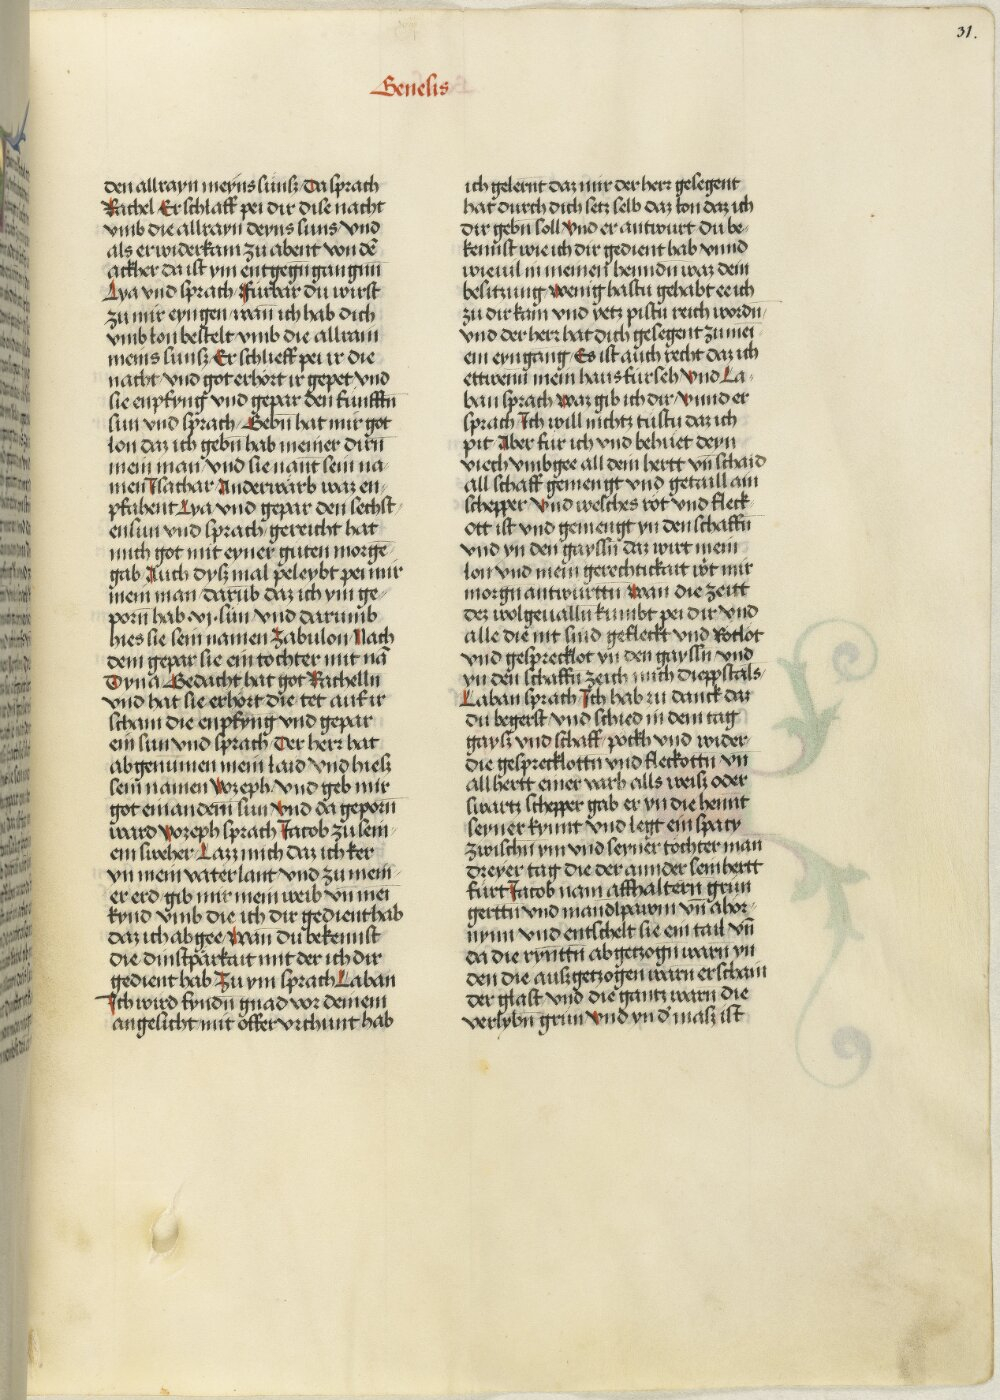 31.
Genesis
den allrayn meyns sunß Da sprach
Rachel Er schlaff pei dir dise nacht
vmb die allrayn deyns suns vnd
als er widerkam zu abent von dē
ackher da ist ym entgegn gangnn
Lya vnd sprach Furbar du wirst
zu mir eyngen wan ich hab dich
vmb lon bestelt vmb die allraun
meins sunß Er schlieff pei ir die
nacht vnd got erhort ir gepet vnd
sie enpfyng vnd gepar den funfftn
sun vnd sprach Gebn hat mir got
lon daz ich gebn hab meiner dirn
mein man vnd sie nant sein na-
men Isachar Anderwarb waz en-
pfahent Lya vnd gepar den sechst-
en sun vnd sprach gereicht hat
mich got mit eyner guten morge-
gab Auch dysz mal peleybt pei mir
mein man darub daz ich ym ge-
porn hab .vi. sun vnd darumb
hies sie sein namen Zabulon Nach
dem gepar sie ein tochter mit nā
Dyna Gedacht hat got Rachelln
vnd hat sie erhort die tet auf ir
scham die enpfyng vnd gepar
ein sun vnd sprach Der herr hat
abgenumen mein laid vnd hiesz
sein namen Yozeph vnd geb mir
got ein andern sun Vnd da geporn
ward Yozeph sprach Jacob zu sein-
em sweher Lazz mich daz ich ker
yn mein vaterlant vnd zu mein-
er erd gib mir mein weib vn̄ mei
kynd vmb die ich dir gedient hab
daz ich abgee Wan du bekennst
die dinstparkait mit der ich dir
gedient hab Zu ym sprach Laban
Ich wird fyndn gnad vor deinem
angesicht mit offer vrchunt hab
ich gelernt daz mir der herr gesegent
hat durch dich setz selb daz lon daz ich
dir gebn soll Vnd er antwurt Du be-
kennst wie ich dir gedient hab vnnd
wieuil in meinen henndn waz dein
besitzung Wenig hastu gehabt ee ich
zu dir kam vnd yetz pistu reich wordn
vnd der herr hat dich gesegent zu mei-
em eyngang Es ist auch recht daz ich
ettwenn mein haus fursech Vnd La-
ban sprach Waz gib ich dir Vnnd er
sprach Ich will nichtz tustu daz ich
pit Aber fur ich vnd behuet deyn
viech vmbgee all dein hertt vn̄ schaid
all schaff gemengt vnd getaill ain
schepper Vnd welches rot vnd fleck-
ott ist vnd gemengt yn den schaffn
vnd yn den gayssn daz wirt mein
lon vnd mein gerechtickait wt mir
morgn antwurttn Wan die zeitt
dez wolgeualln kumbt pei dir vnd
alle die nit sind gefleckt vnd Rotlot
vnd gesprecklot yn den gayssn vnd
yn den schaffn zeich mich diepstals
Laban sprach Ich hab zu danck daz
du begerst vnd schied in dem tag
gaysz vnd schaff pockh vnd wider
die gesprecklottn vnd fleckottn vn̄
all hertt einer varb alls weisz oder
swartz schepper gab er yn die hennt
seyner kynnt vnd legt ein spacy
zwischn ym vnd seyner tochter man
dreyer tag die der annder sein hertt
furt Jacob nam affhaltern grun
gerttn vnd mandlpawm vn̄ ahor-
nynn vnd entschelt sie ein tail vn̄
da die ryntn abgetzogn warn yn
den die auszgetzogen warn erschain
der glast vnd die gantz warn die
verlybn grun Vnd yn d masz ist